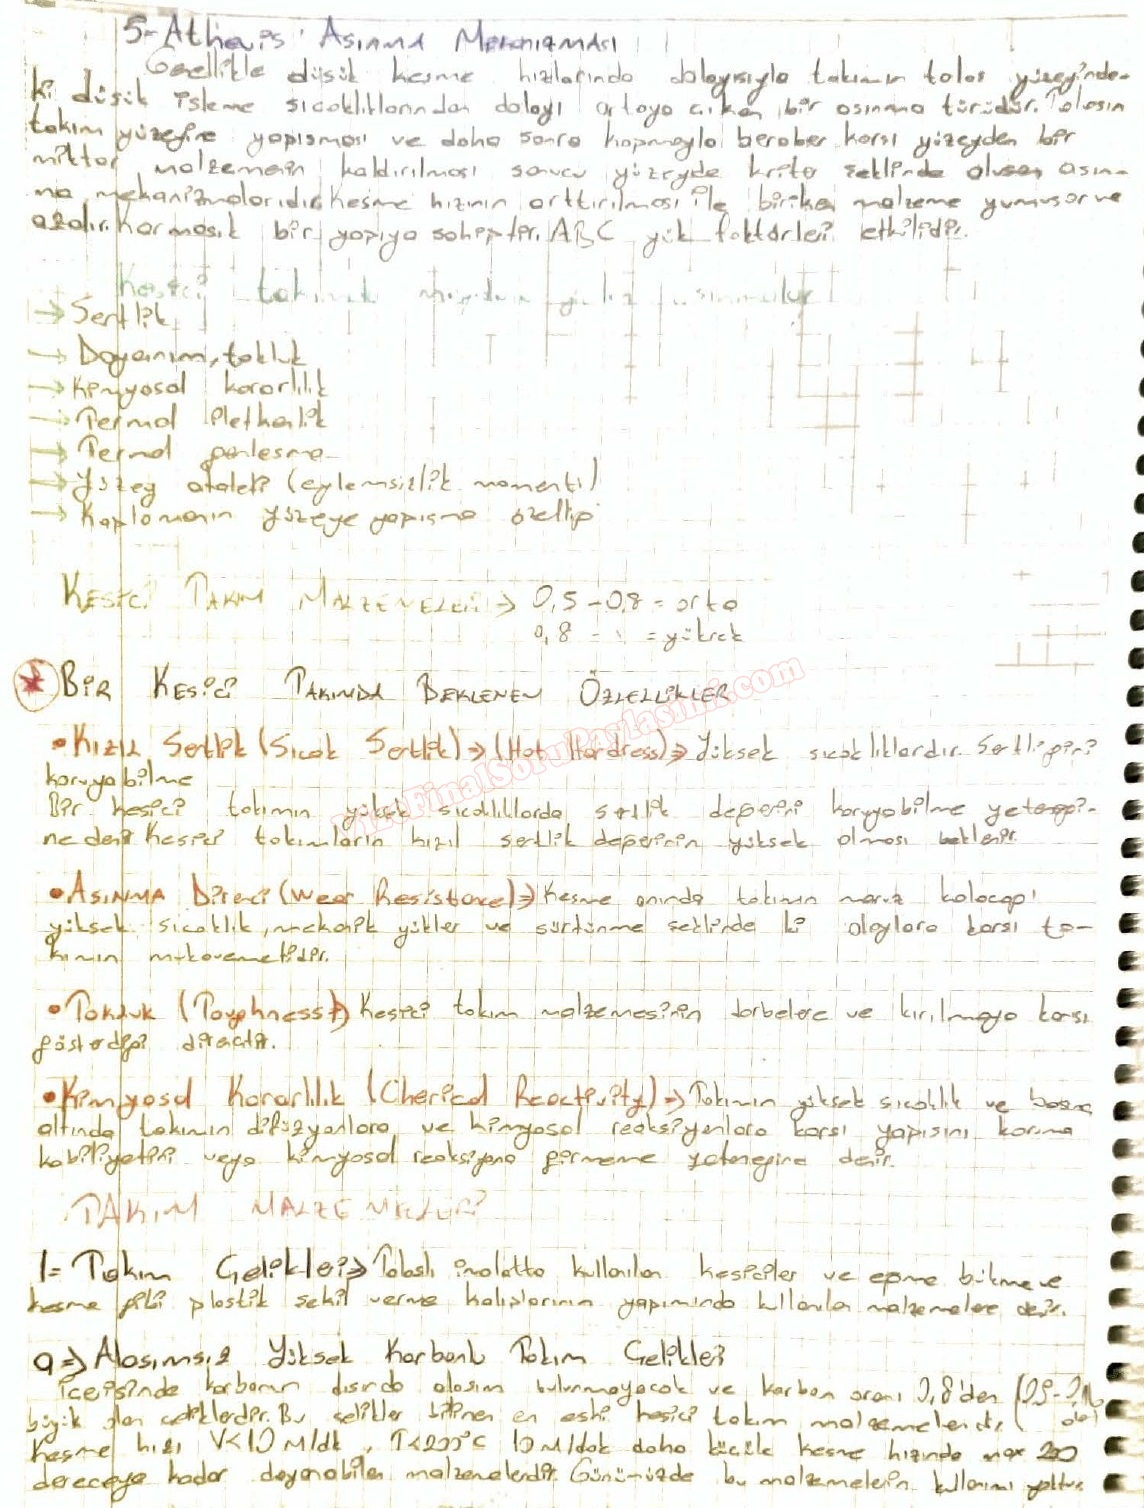 5- Athezis Aşınma Mekanizması
Genellikle düşük kesme hızlarında dolayısıyla takımın talaş yüzeyinde-
ki düşük işleme sıcaklıklarından dolayı ortaya çıkan bir aşınma türüdür. Talaşın
takım yüzeyine yapışması ve daha sonra kopmayla beraber karşı yüzeyden bir
miktar malzemenin kaldırılması sonucu yüzeyde krite şeklinde oluşan aşın-
ma mekanizmalarıdır. Kesme hızının arttırılması ile biriken malzeme yumuşar ve
azalır. Karmaşık bir yapıya sahiptir. ABC yük faktörleri etkilidir.
Kesici
→ Sertlik
→ Dayanım, tokluk
→ Kimyasal kararlılık
→ Termal iletkenlik
→ Termal genleşme
→ Yüzey ataleti (eylemsizlik momenti)
→ Kaplamanın yüzeye yapışma özelliği
Kesici Takım Malzemeleri → 0,5 - 0,8 = orta
0,8 - 1 = yüksek
Bir Kesici Takımda Beklenen Özellikler
• Kızıl Sertlik (Sıcak Sertlik) → (Hot Hardness) → Yüksek sıcaklıklardır. Sertliğini
koruyabilme
Bir kesici takımın yüksek sıcaklıklarda sertlik değerini koruyabilme yeteneği-
ne denir. Kesici takımların kızıl sertlik değerinin yüksek olması beklenir.
• Aşınma Direnci (Wear Resistance) → Kesme anında takımın maruz kalacağı
yüksek sıcaklık, mekanik yükler ve sürtünme şeklinde ki olaylara karşı ta-
kımın mukavemetidir.
• Tokluk (Toughness) → Kesici takım malzemesinin darbelere ve kırılmaya karşı
gösterdiği dirençtir.
• Kimyasal Kararlılık (Chemical Reactivity) → Takımın yüksek sıcaklık ve basınç
altında takımın difüzyonlara ve kimyasal reaksiyonlara karşı yapısını koruma
kabiliyetini veya kimyasal reaksiyona girmeme yeteneğine denir.
TAKIM MALZEMELERİ
1= Takım Çelikleri → Talaşlı imalatta kullanılan kesiciler ve eğme bükme ve
kesme gibi plastik şekil verme kalıplarının yapımında kullanılan malzemelere denir.
a → Alaşımsız Yüksek Karbonlu Takım Çelikleri
İçerisinde karbonun dışında alaşım bulunmayacak ve karbon oranı 0,8'den
büyük olan çeliklerdir. Bu çelikler bilinen en eski kesici takım malzemelerindir.
Kesme hızı V<10 m/dk, T<200°C 10 m/dak daha küçük kesme hızında max 200
dereceye kadar dayanabilen malzemelerdir. Günümüzde bu malzemelerin kullanımı yoktur.
VizeFinalSoruPaylasimi.com